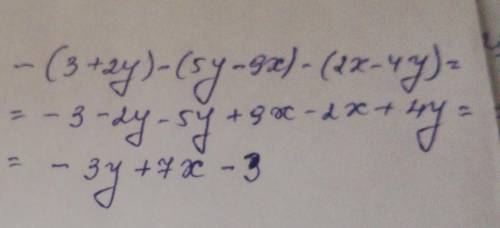 -(3+2y)-(5y-9x)-(2x-4y)=
= -3-2y-5y+9x-2x+4y=
= -3y+7x-3